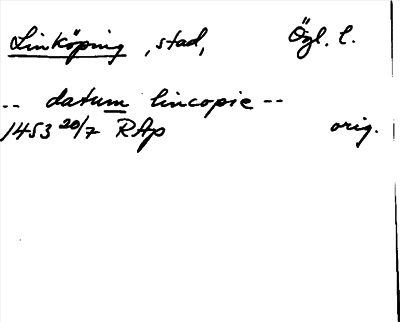 Linköping, stad, Ögl. l.
-- datum lincopie --
1453 20/7 RAp orig.